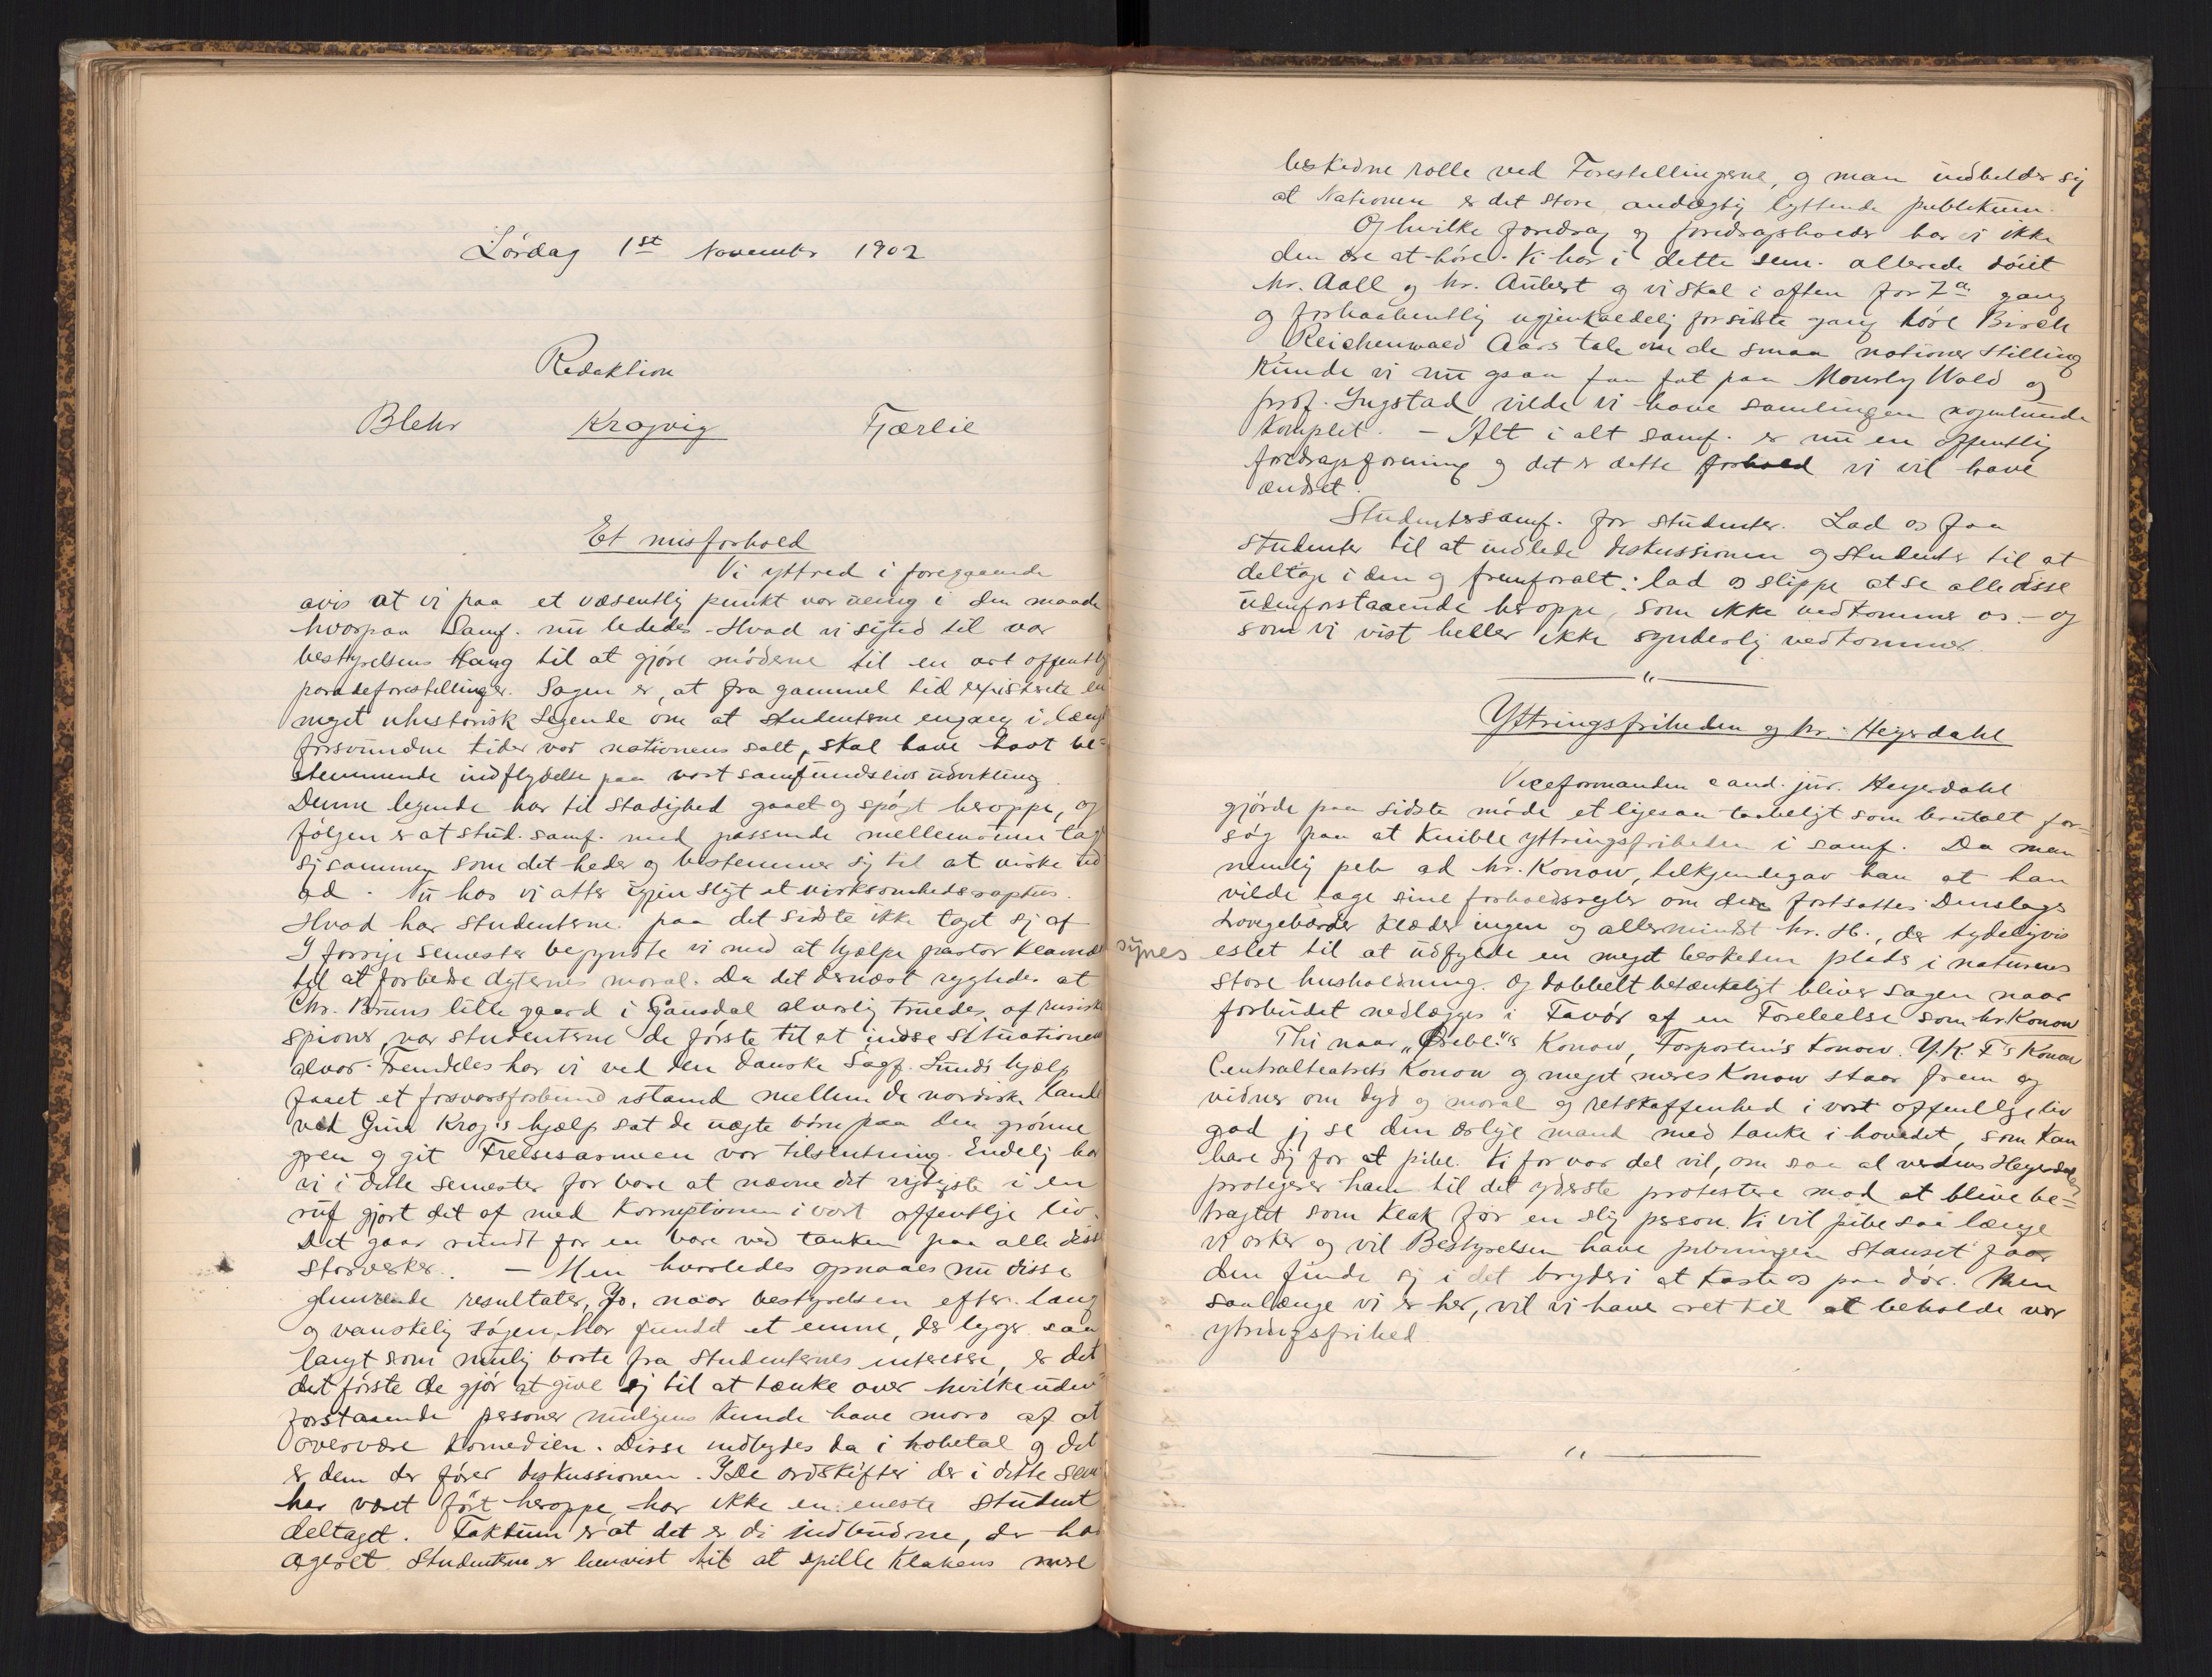 Lördag 1st November 1902
Redaktion
Blehr Kragvig Fjærlie
Et misforhold
Vi yttred i foregaaende
avis at vi paa et væsentlig punkt var uenig i den maade
hvorpaa Samf. nu lededes. Hvad vi sigted til var
bestyrelsens Hang til at gjöre möderne til en art offentlig
paradeforestillinger. Sagen er, at fra gammel tid existerete en
meget uhistorisk Legende om at studenterne engang i længst
forsvundne tider var nationens salt, skal have havt be-
stemmende indflydelse paa vort samfundslivs udvikling.
Denne legende har til Stadighed gaaet og spögt heroppe, og
fölgen er at stud. samf. med passende mellemrum tage
sj sammen som det heder og bestemmer sj til at virke ud
ad. Nu har vi atter igjen sligt et virksomhedsraptus.
Hvad har studenterne paa det sidste ikke taget sj af
I forrige semester begyndte vi med at hjælpe pastor Klavnæs
til at forbedre digternes moral. Da det dernæst rygtedes at
Chr. Bruns lille gaard i Gausdal alvorlig truedes af russiske
spioner, var studenterne de förste til at indse Situationens
alvor. Fremdeles har vi ved den danske Sagf. Lunds hjælp
faaet et forsvarsforbund istand mellem de nordiske lande
ved Gina Krog's hjælp sat de uægte börn paa den grönne
gren og git Frelsesarmeen vor tilslutning. Endelig har
vi i dette semester for bare at nævne det vigtigste i en
ruf gjort det af med Korruptionen i vort offentlige liv.
Det gaar rundt for en bare ved tanken paa alle disse
storværker. — Men hvorledes opnaaes nu disse
glimrende resultater, Jo, naar bestyrelsen efter lang
og vanskelig sögen har fundet et emne, der ligger saa
langt som mulig borte fra Studenternes interesse, er det
det förste de gjör at give sj til at tænke over hvilke uden-
forstaaende personer muligens kunde have moro af at
overvære Komedien. Disse indbydes da i hobetal og det
er dem der förer diskussionen. I De ordskifter der i dette sem
har været fört heroppe har ikke en eneste student
deltaget. Faktum er at det er de indbudne, der har
ageret. Studenterne er henvist til at spille Klakens mere
beskedne rolle ved Forestillingerne, og man indbilder sig
at Nationen er det store andægtig lyttende publikum.
Og hvilke foredrag og foredragsholder har vi ikke
den ære at höre. Vi har i dette sem. allerede döiet
hr. Aall og hr. Aubert og vi skal i aften for 7de gang
og forhaabentlig ugjenkaldelig for sidste gang höre Birch
Reichenwald Aars tale om de smaa nationers Stilling
Kunde vi nu ogsaa faa fat paa Mourly Vold og
prof. Ingstad vilde vi have samlingen nogenlunde
Komplet. — Alt i alt samf. er nu en offentlig
foredragsforening og det er dette forhold vi vil have
ændret.
Studentersamf. for studenter. Lad os faa
studenter til at indlede diskussionen og studenter til at
deltage i den og fremforalt: lad os slippe at se alle disse
udenforstaaende heroppe, som ikke vedkommer os. — og
som vi vist heller ikke synderlig vedkommer.
"
Yttringsfriheden og hr. Heyerdahl
Viceformanden cand. jur. Heyerdahl
gjörde paa sidste möde et ligesaa taabeligt som brutalt for-
sög paa at knible yttringsfriheden i samf. Da man
nemlig peb ad hr. Konow, tilkjendegav han at han
vilde tage sine forholdsregler om den fortsattes. Denslags
Lovegebærder klæder ingen og allermindst hr. H., der tydeligvis
synes eslet til at udfylde en meget beskeden plads i naturens
store husholdning. Og dobbelt betænkeligt bliver sagen naar
forbudet nedlægges i Favör af en Foreteelse som hr. Konow
Thi naar „Örebl."s Konow, Forposten's Konow. Y.K.F's Konow
Centralteatrets Konow og meget meres Konow staar frem og
vidner om dyd og moral og retskaffenhed i vort offentlige liv
gad jj se den ærlige mand med tanke i hovedet, som kan
bare sig for at pibe. Vi for vor del vil, om saa al verdens Heyerdahl
protegerer ham til det yderste protestere mod at blive be-
tragtet som Klak for en slig person. Vi vil pibe saa længe
vi orker og vil Bestyrelsen have pibningen stanset faar
den finde sj i det bryderi at kaste os paa dör. Men
saalænge vi er her, vil vi have ret til at beholde vor
ytringsfrihed
"